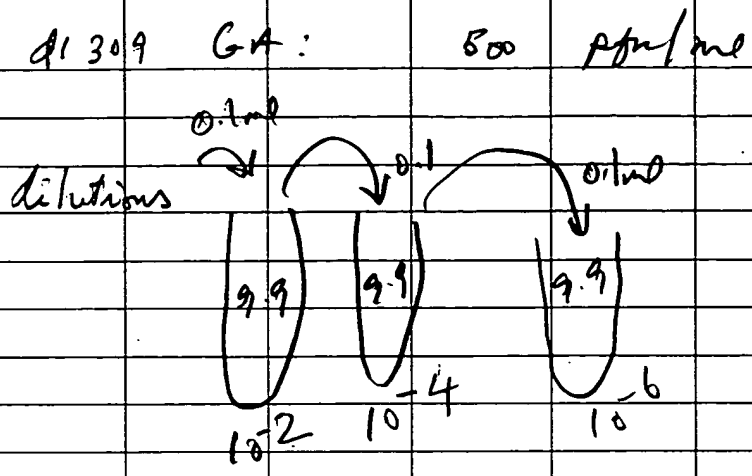 dl 309 GA: 500 pfu/ml
0.1ml
0.1 0.1ml
dilutions
9.9 9.9 9.9
10-2 10-4 10-6